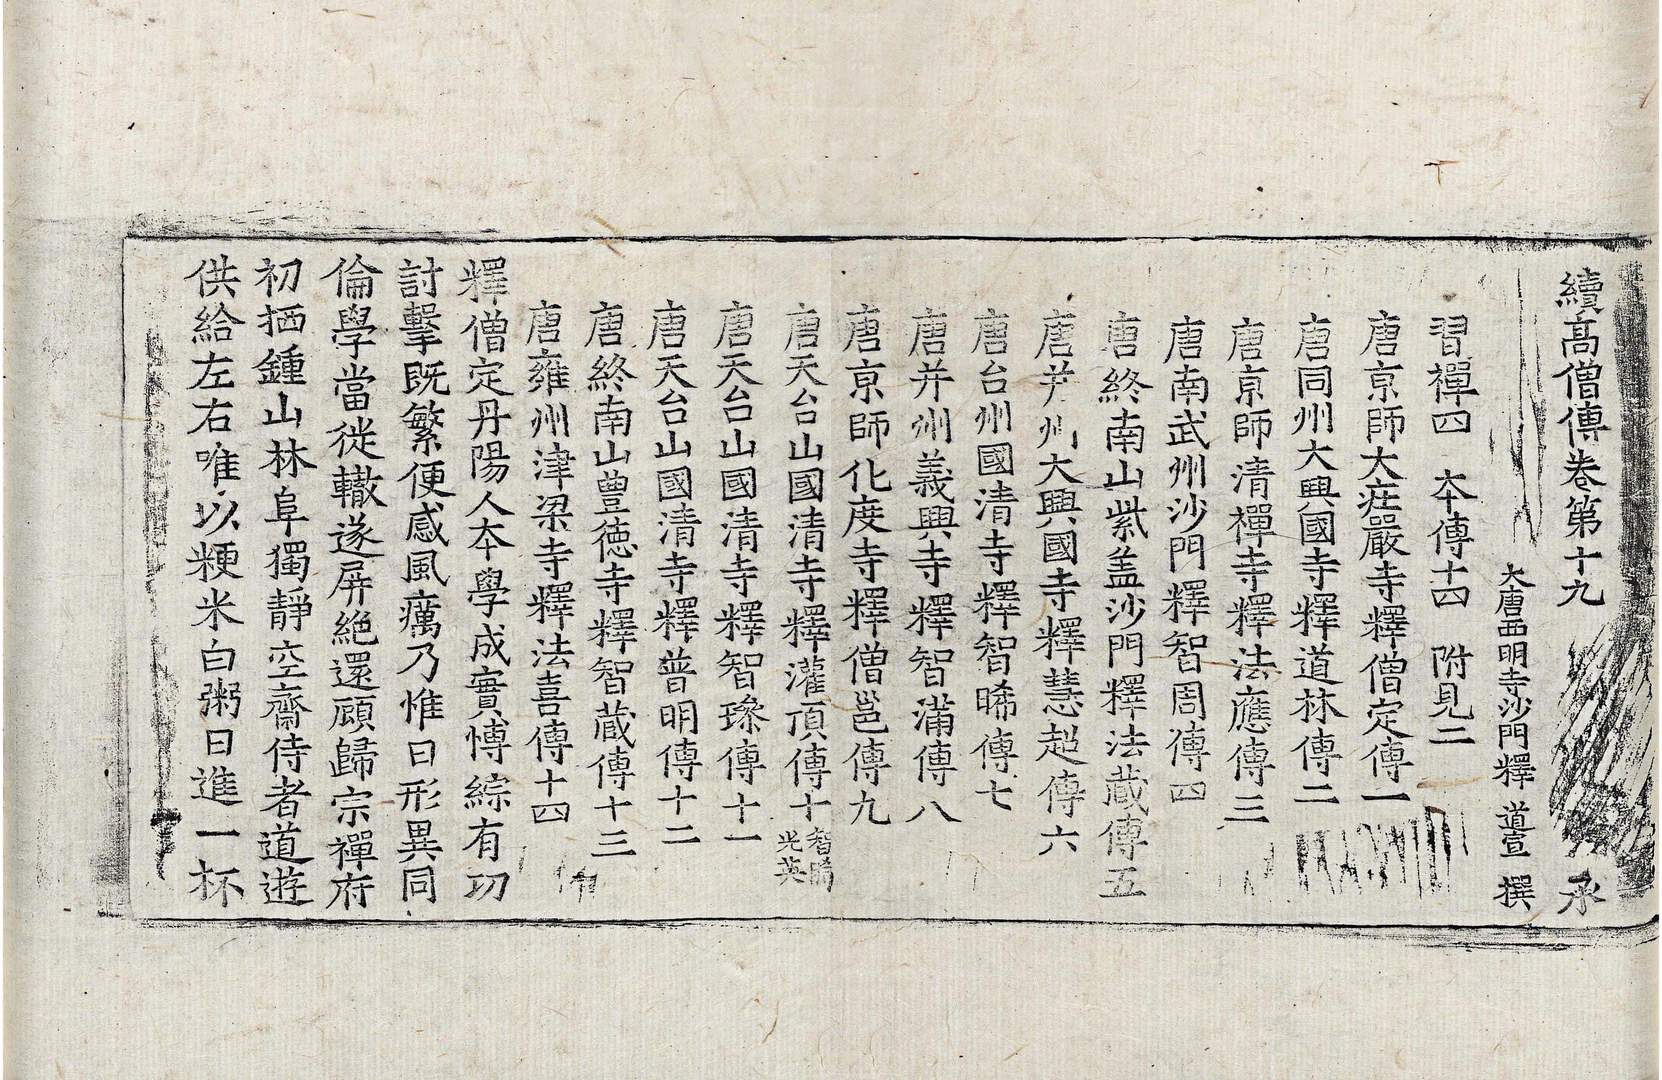 續高僧傳卷第十九 承
大唐西明寺沙門釋 道宣 撰
習禪四 本傳十四 附見二
唐京師大莊嚴寺釋僧定傳一
唐同州大興國寺釋道林傳二
唐京師清禪寺釋法應傳三
唐南武州沙門釋智周傳四
唐終南山紫盖沙門釋法藏傳五
唐并州大興國寺釋慧超傳六
唐台州國清寺釋智晞傳七
唐并州義興寺釋智滿傳八
唐京師化度寺釋僧邕傳九
唐天台山國清寺釋灌頂傳十 智晞 光英
唐天台山國清寺釋智璪傳十一
唐天台山國清寺釋普明傳十二
唐終南山豊德寺釋智藏傳十三
唐雍州津梁寺釋法喜傳十四
釋僧定丹陽人本學成實博綜有功
討擊既繁便感風癘乃惟曰形異同
倫學當從轍遂屏絕還顧歸宗禪府
初栖鍾山林阜獨靜空齋侍者道遊
供給左右唯以粳米白粥日進一杯